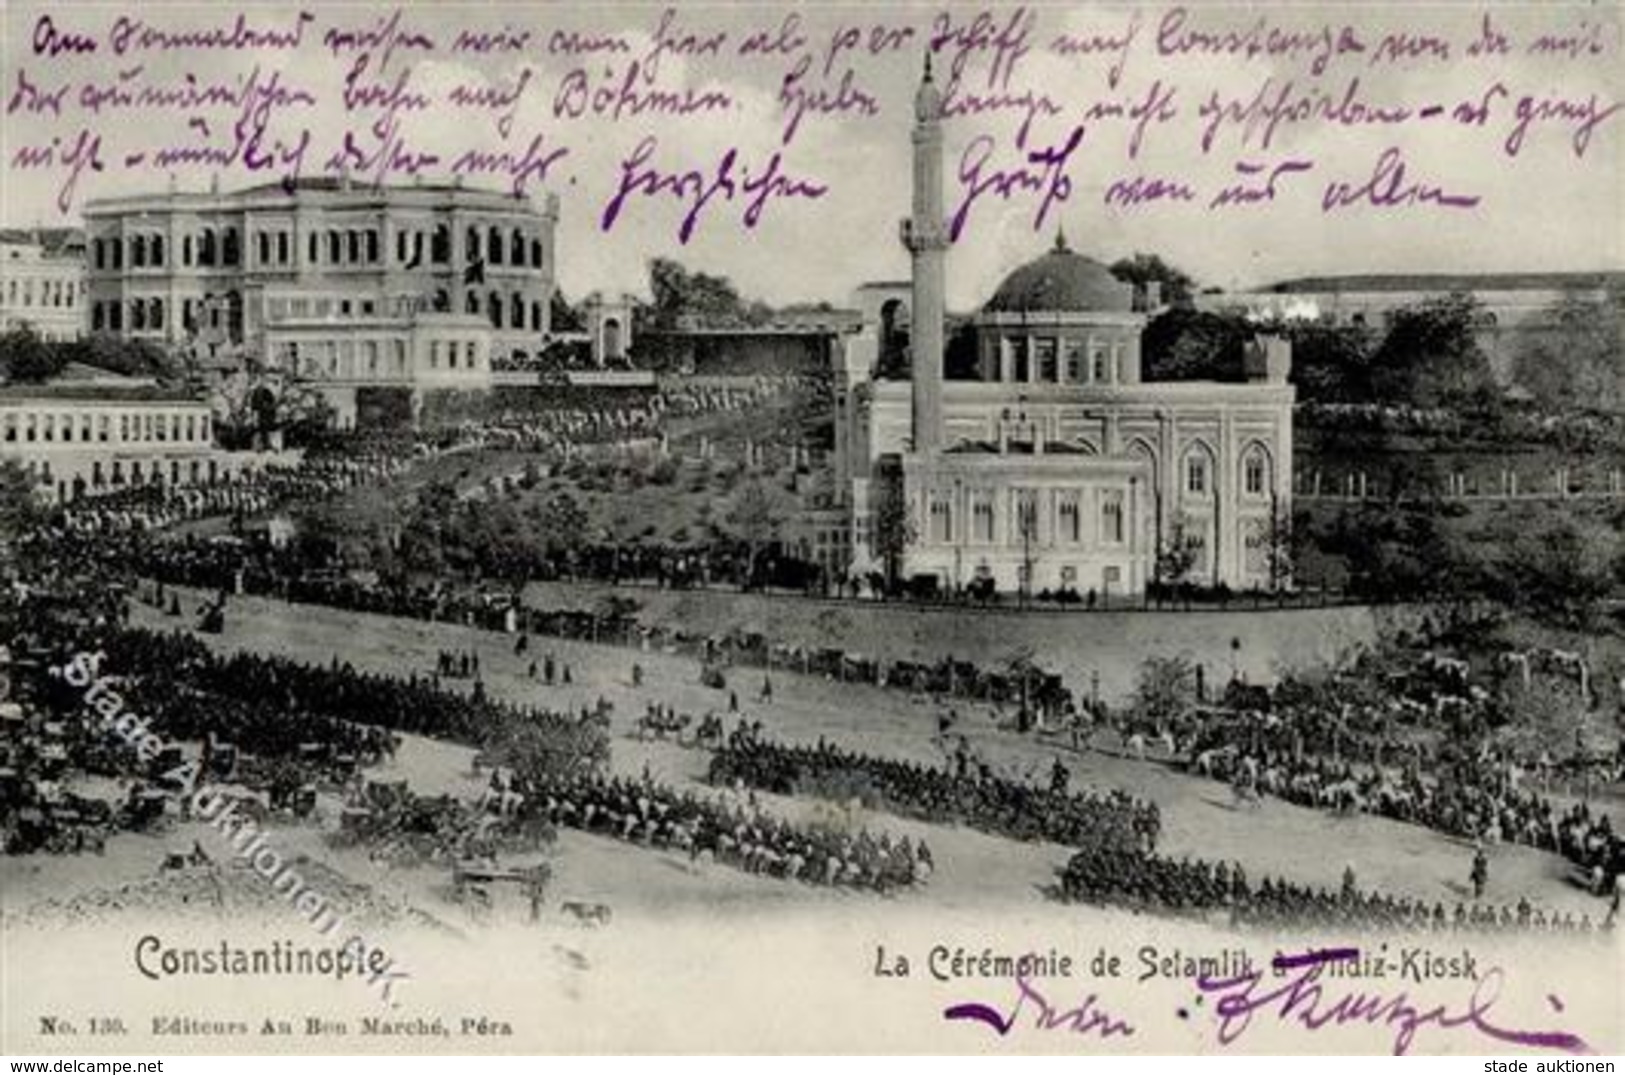 Am Sonnabend reisen wir von hier ab per Schiff nach Constanza von da mit
der rumänischen Bahn nach Böhmen. Habe lange nicht geschrieben – es ging
nicht – mündlich desto mehr. Herzlichen Gruß von uns allen
Constantinople
La Cérémonie de Selamlik à Yildiz-Kiosk
Dein
No. 130. Editeurs Au Bon Marché, Péra
Stade Auktionen
stade auktionen